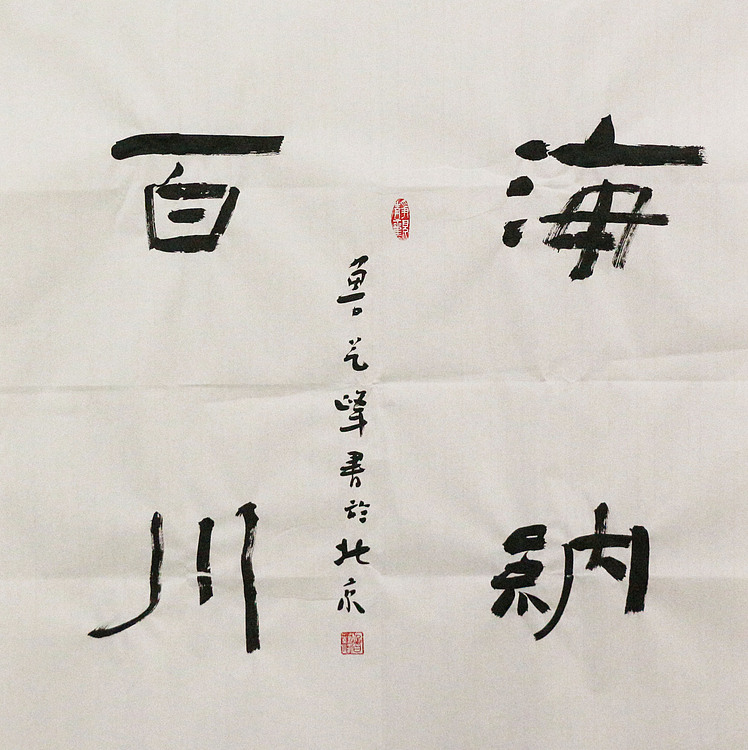 海納
百川
魯光峰書於北京